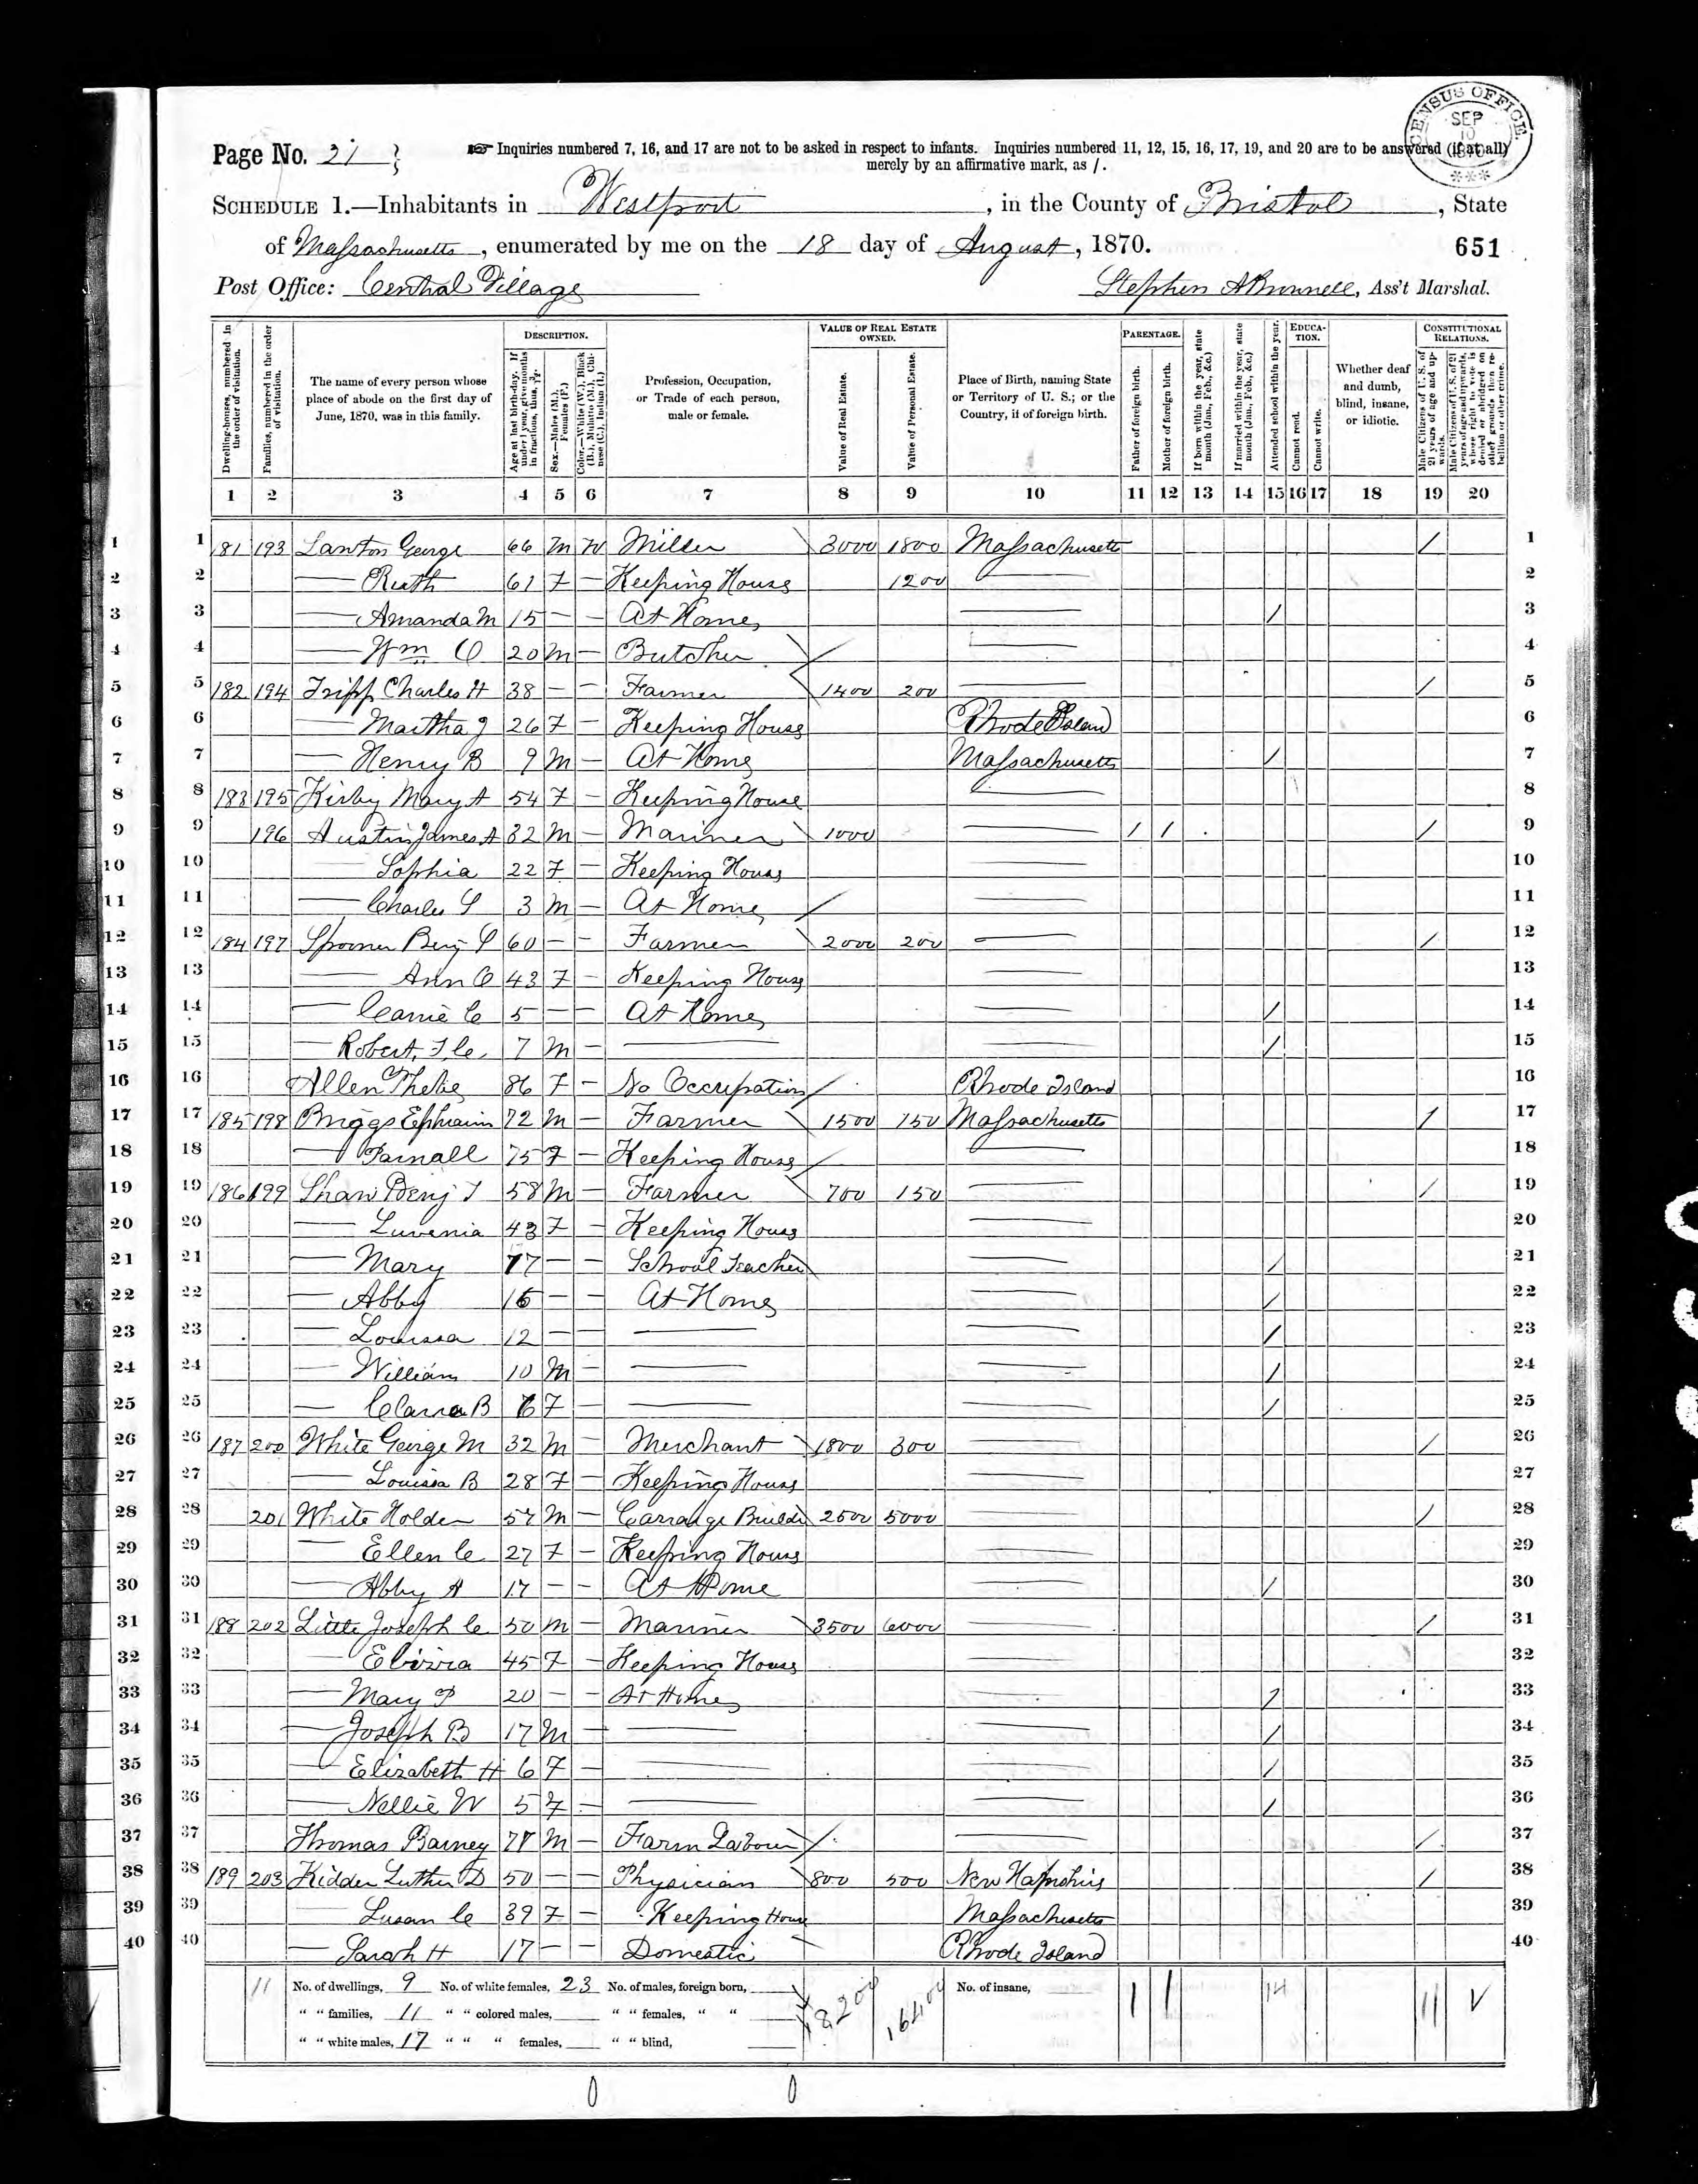 CENSUS OFFICE SEP 10 1870 ***
Page No. 21
Inquiries numbered 7, 16, and 17 are not to be asked in respect to infants. Inquiries numbered 11, 12, 15, 16, 17, 19, and 20 are to be answered (if at all)
merely by an affirmative mark, as /.
SCHEDULE 1.—Inhabitants in Westport, in the County of Bristol, State
of Massachusetts, enumerated by me on the 18 day of August, 1870.
651
Post Office: Central Village
Stephen A Brownell, Ass't Marshal.
Dwelling-houses, numbered in the order of visitation.
Families, numbered in the order of visitation.
The name of every person whose place of abode on the first day of June, 1870, was in this family.
DESCRIPTION.
Age at last birth-day. If under 1 year, give months in fractions, thus, 3/12.
Sex.—Males (M.), Females (F.)
Color.—White (W.), Black (B.), Mulatto (M.), Chinese (C.), Indian (I.)
Profession, Occupation, or Trade of each person, male or female.
VALUE OF REAL ESTATE OWNED.
Value of Real Estate.
Value of Personal Estate.
Place of Birth, naming State or Territory of U. S.; or the Country, if of foreign birth.
PARENTAGE.
Father of foreign birth.
Mother of foreign birth.
If born within the year, state month (Jan., Feb., &c.)
If married within the year, state month (Jan., Feb., &c.)
Attended school within the year.
EDUCATION.
Cannot read.
Cannot write.
Whether deaf and dumb, blind, insane, or idiotic.
CONSTITUTIONAL RELATIONS.
Male Citizens of U. S. of 21 years of age and upwards.
Male Citizens of U. S. of 21 years of age and upwards, whose right to vote is denied or abridged on other grounds than rebellion or other crime.
1 2 3 4 5 6 7 8 9 10 11 12 13 14 15 16 17 18 19 20
1 1 181 193 Lawton George 66 M W Miller 3000 1800 Massachusetts / 1
2 2 — Ruth 61 F — Keeping House 1200 — 2
3 3 — Amanda M 15 — — At Home — / 3
4 4 — Wm O 20 M — Butcher — 4
5 5 182 194 Tripp Charles H 38 — — Farmer 1400 200 — / 5
6 6 — Martha J 26 F — Keeping House Rhode Island 6
7 7 — Henry B 9 M — At Home Massachusetts / 7
8 8 183 195 Kirby Mary A 54 F — Keeping House — 8
9 9 196 Austin James A 32 M — Mariner 1000 — / / / 9
10 10 — Sophia 22 F — Keeping House — 10
11 11 — Charles S 3 M — At Home — 11
12 12 184 197 Spooner Benj S 60 — — Farmer 2000 200 — / 12
13 13 — Ann O 43 F — Keeping House — 13
14 14 — Carrie C 5 — — At Home — / 14
15 15 — Robert. F. C. 7 M — — — / 15
16 16 Allen Phebe 86 F — No Occupation Rhode Island 16
17 17 185 198 Briggs Ephraim 72 M — Farmer 1500 150 Massachusetts / 17
18 18 — Parnall 75 F — Keeping House — 18
19 19 186 199 Shaw Benj T 58 M — Farmer 700 150 — / 19
20 20 — Luvenia 43 F — Keeping House — 20
21 21 — Mary 17 — — School Teacher — / 21
22 22 — Abby 16 — — At Home — / 22
23 23 — Louissa 12 — — — — / 23
24 24 — William 10 M — — — / 24
25 25 — Clarra B F — — — / 25
26 26 187 200 White George M 32 M — Merchant 1800 300 — / 26
27 27 — Louisa B 28 F — Keeping House — 27
28 28 201 White Holder 57 M — Carraige Builder 2500 5000 — / 28
29 29 — Ellen C 27 F — Keeping House — 29
30 30 — Abby A 17 — — At Home — / 30
31 31 188 202 Little Joseph C 50 M — Mariner 3500 6000 — / 31
32 32 — Elvira 45 F — Keeping House — 32
33 33 — Mary P 20 — — At Home — / 33
34 34 — Joseph B 17 M — — — / 34
35 35 — Elizabeth H 6 F — — — / 35
36 36 — Nellie W 5 F — — — / 36
37 37 Thomas Barney M — Farm Labour — / 37
38 38 189 203 Kidder Luther D 50 — — Physician 800 500 New Hapshire / 38
39 39 — Susan C 39 F — Keeping House Massachusetts 39
40 40 — Sarah H 17 — — Domestic Rhode Island 40
11 No. of dwellings, 9 No. of white females, 23 No. of males, foreign born, 18200 16400 No. of insane, 1 1 14 11 V
" " families, 11 " " colored males, " " females, " "
" " white males, 17 " " " females, " " blind,
0 0